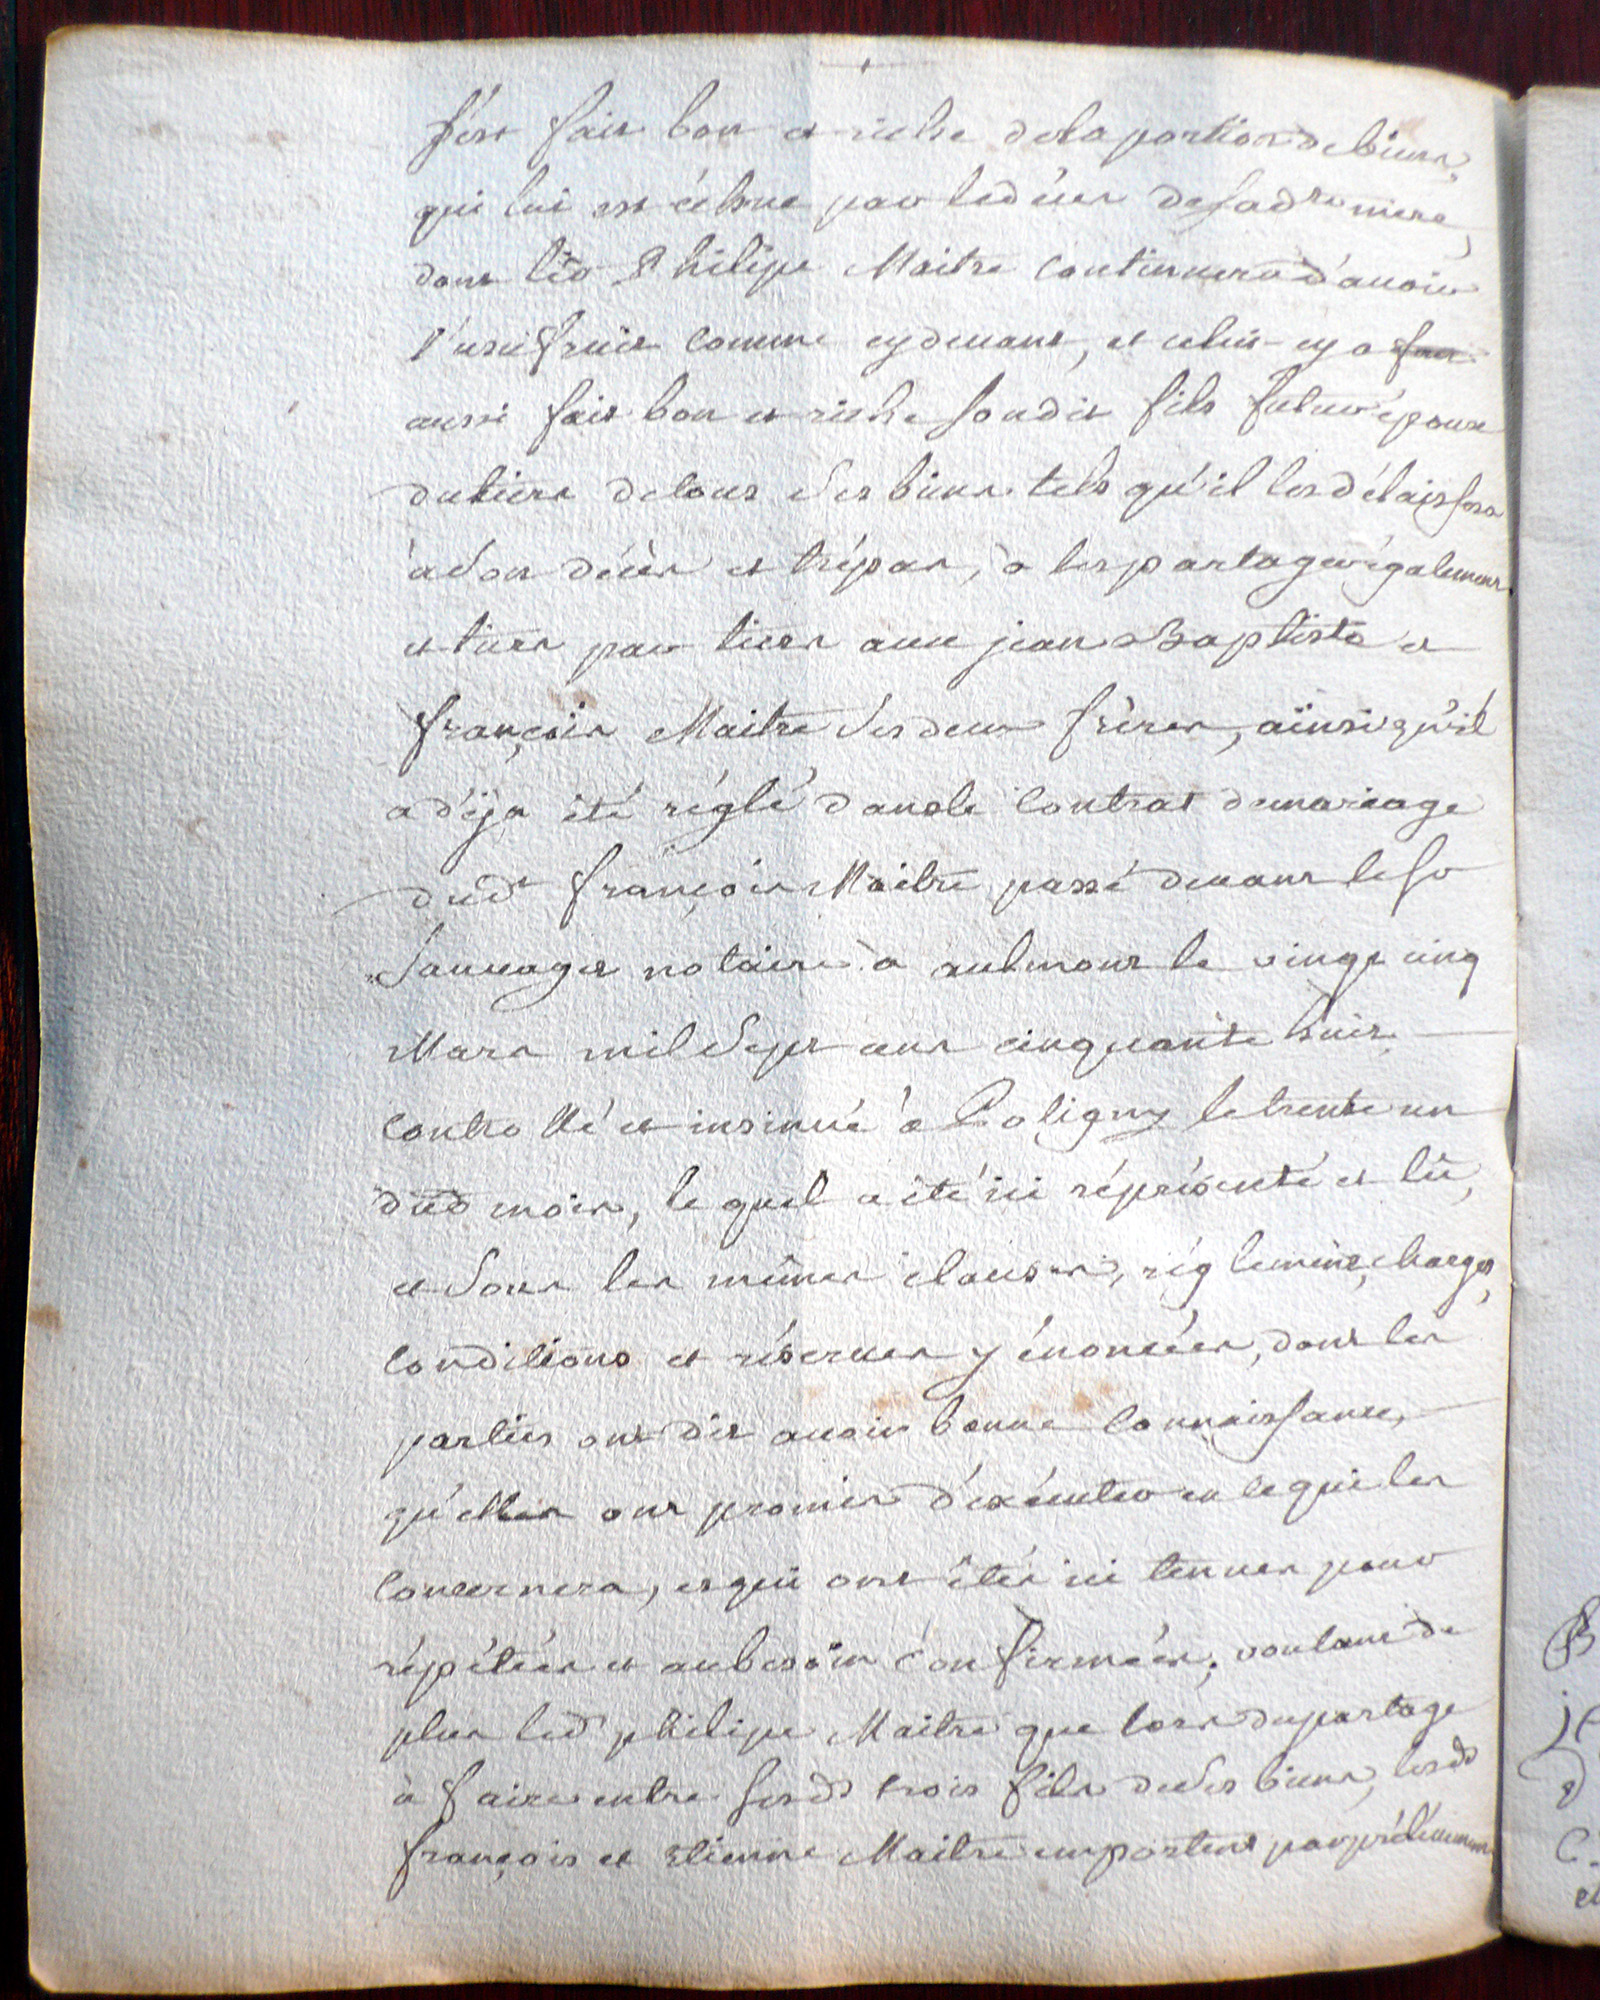 s'est fait bon et riche dela portion de biens
qui lui est échue par ledécès desad.te mere,
dont led Philipe Maitre continuera d'avoir
l'usufruit comme cydevant, et celui-cy a
aussi fait bon et riche sondit fils futur époux
dutiers detous ses biens tels qu'il les délaissera
àson décès et trépas, à les partager également
et tiers par tiers avec jean Baptiste et
françois Maitre ses deux fréres, aïnsi qu'il
a déja été réglé dansle contrat demariage
dud.t françois Maitre passé devant le Sr
Sauvaget notaire à aulmont le vingt cinq
Mars mil sept cent cinquante huit
controllé et insinué à Poligny le trente un
dud mois, le quel a été ici réprésenté et lû,
et sous les mêmes clauses, réglemens, charges,
conditions et réserves y énoncées, dont les
parties ont dit avoir bonne connaissance,
qu'elles ont promis d'éxécuter en ce qui les
concernera, et qui ont étés ici tenues pour
répétées et aubesoin confirmées, voulant de
plus led philipe Maitre que lors dupartage
à faire entre sesds trois fils deses biens, lesds
françois et Etienne Maitre emportent par prélevement